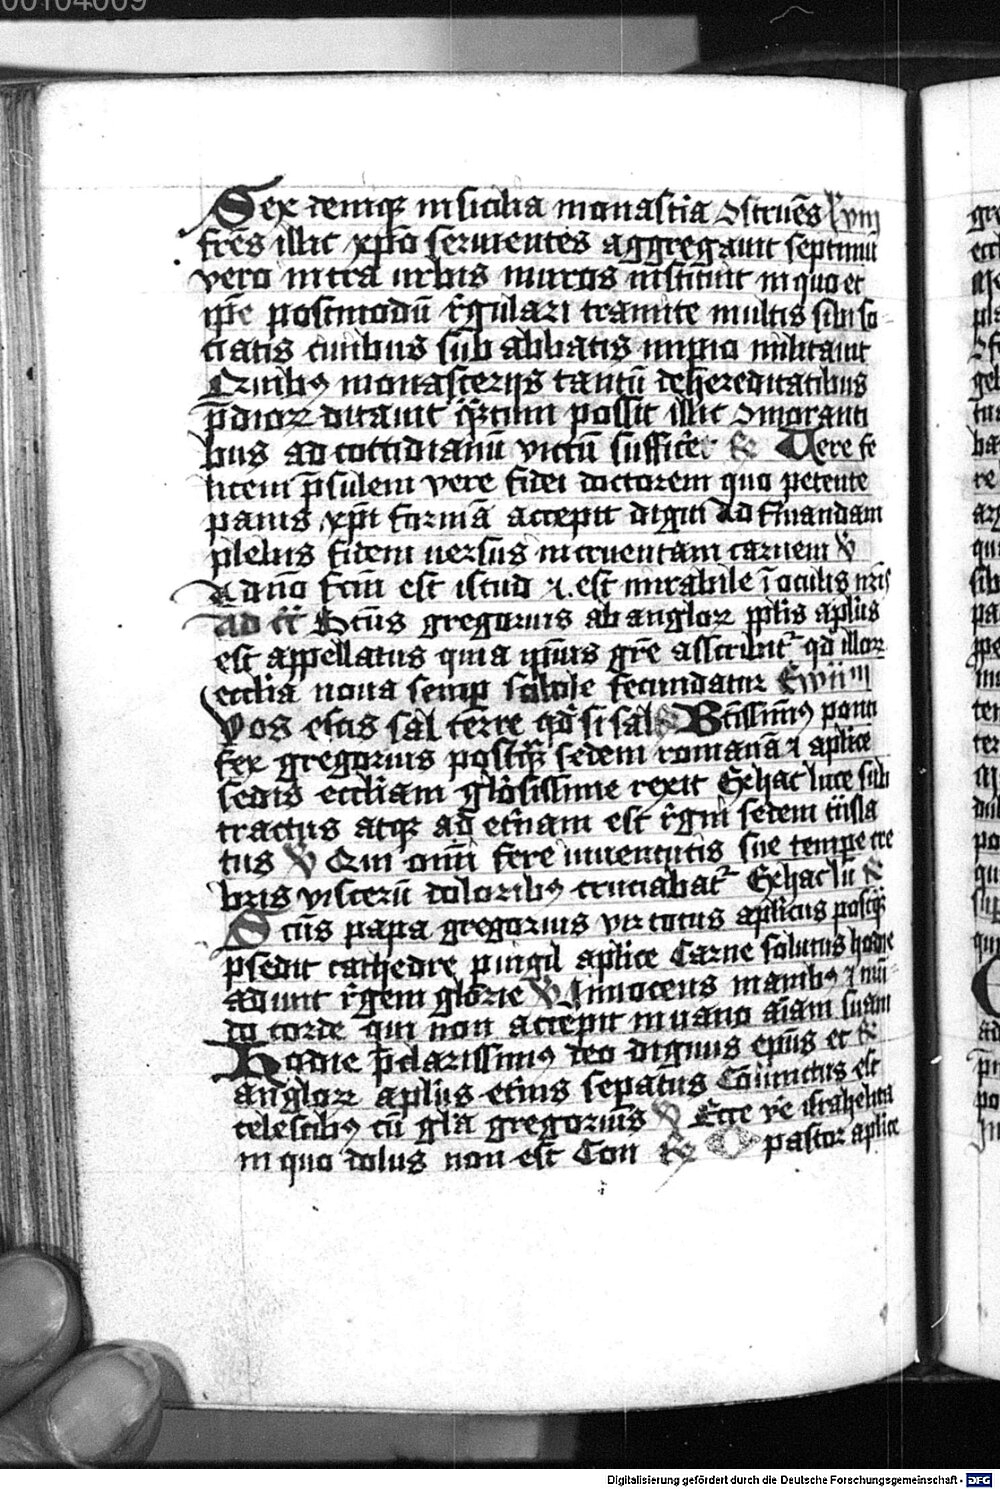 00104009
Sex deniqꝫ in sicilia monastia ↄstruēs Lc̄ vın
frēs illic xp̄o seruientes aggregauit septimū
vero intra urbis muros instituit in quo et
ip̄e postmodū r̄gulari tramite multis sibi so
ciatis ciuibus sub abbatis impio militauit
Quibꝯ monasteriis tantū de hereditatibus
p̄dioꝝ ditauit qᷓtum possit illic ↄmoranti
bus ad cottidianū victū sufficer̄ ℟ Vere fe
licem p̄sulem vere fidei doctorem quo petente
panis xp̄i formā accepit digiti Ad firmandam
plebis fidem uersus incruentam carnem ℣
A dn̄o fcm̄ est istud ⁊ est mirabile ī oculis nr̄is
Ad Sc̄us gregorius ab angloꝝ pplis aplūs
est appellatus quia ip̄ius gr̄e asscribit᷑ qd illoꝝ
ecclia noua semp sobole fecundatur Ewm̄
Vos estis sal terre qd̄ si sal ℟ Btissimꝯ ponti
fex gregorius postqᷓ sedem romanā ⁊ aplice
sedis eccliam glōsissime rexit Ex hac luce sub
tractus atqꝫ ad et̄nam est r̄gni sedem trāsla
tus ℣ Qui omni fere iuuentutis sue tempe cre
bris visceruꝫ doloribꝯ cruciabat᷑ Ex hac lū ℟
Sc̄us papa gregorius vir totus aplicus postqᷓ
p̄sedit cathedre pingil aplice Carne solutus hodie
adiuit r̄gem glōrie ℣ Innocens manibꝯ ⁊ mū
do corde qui non accepit in uano aīam suam
Hodie p̄clarissimꝯ deo dignus ep̄us et ℟
angloꝝ aplūs eximius sepatus Coniunctus est
celestibꝯ cū glīa gregorius ℣ Ecce ve israhelita
in quo dolus non est Con ℟ O pastor aplice
Digitalisierung gefördert durch die Deutsche Forschungsgemeinschaft - DFG